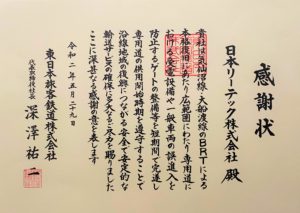 感謝状
日本リーテック株式会社 殿
貴社は気仙沼線・大船渡線のBRTによる
本格復旧にあたり広範囲にわたり専用道に
おける受電設備や一般車両の誤進入を
防止するゲートの整備等を短期間で完遂し
専用道の供用開始時期を遵守することで
沿線地域の復興につながる安全で安定的な
輸送サービスの確保に多大なご尽力を賜りました
ここに深甚なる感謝の意を表します
令和二年五月二十九日
東日本旅客鉄道株式会社
代表取締役社長 深澤祐二